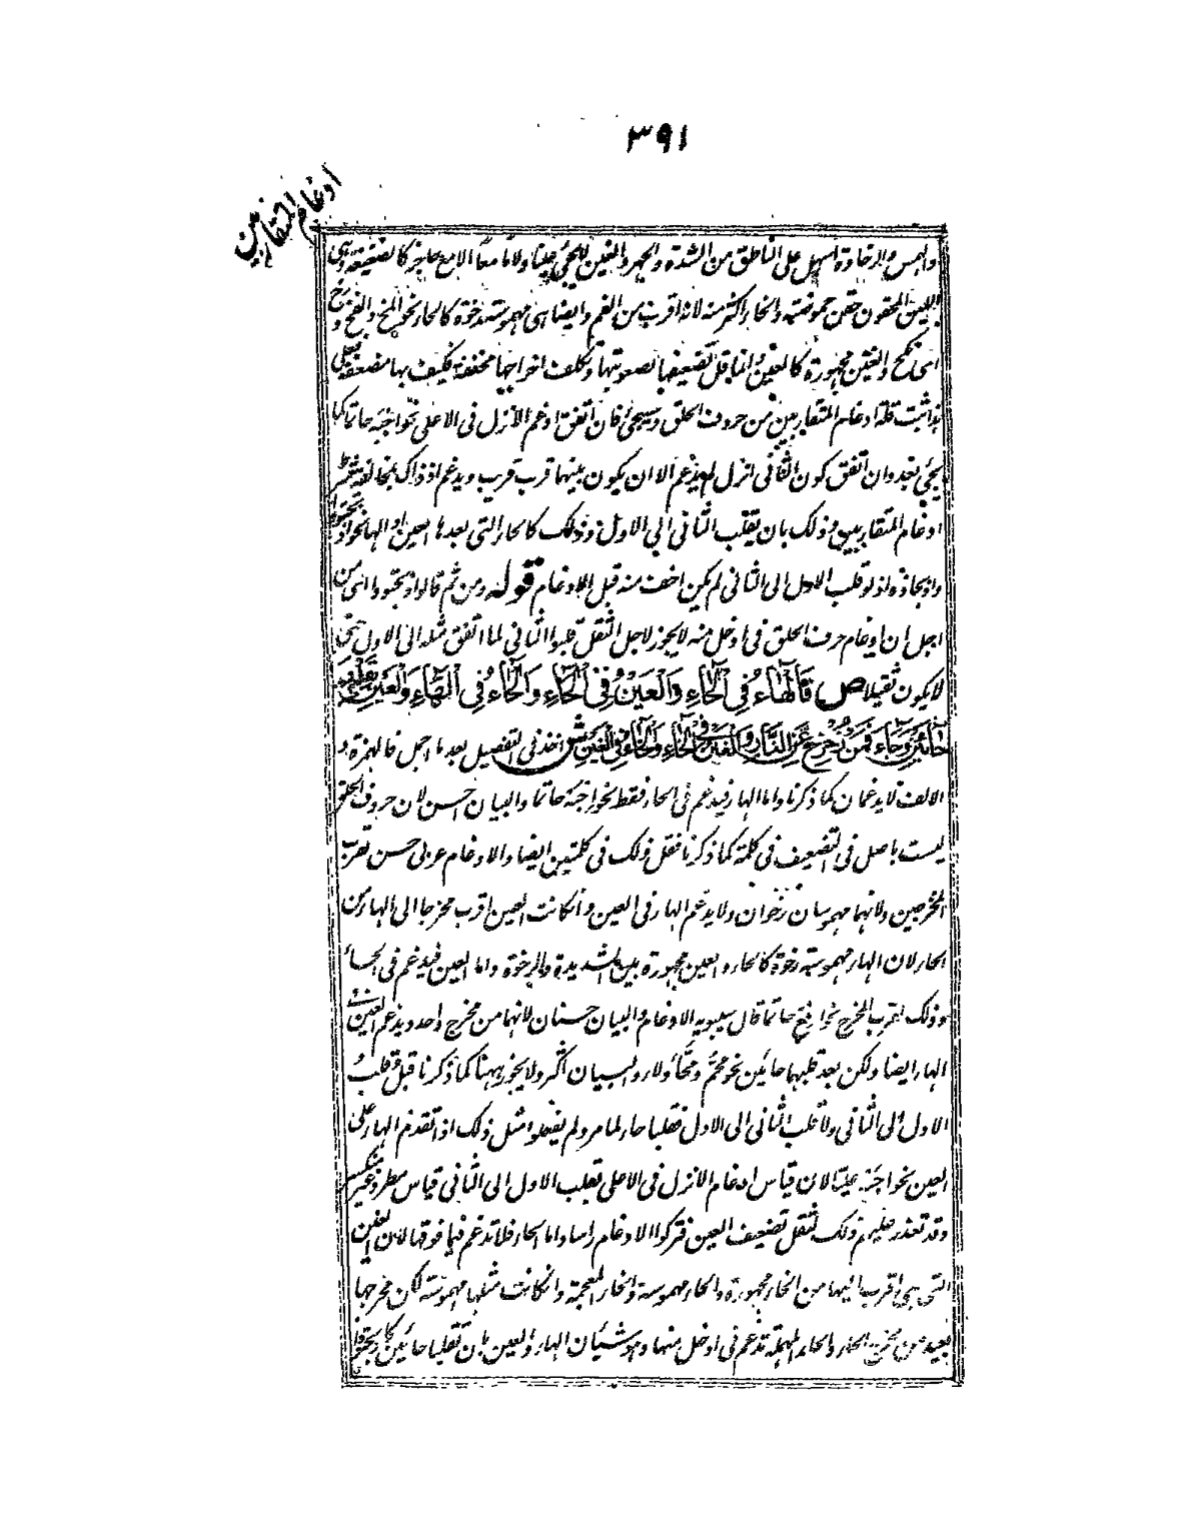 ٣٩١
ادغام المتقاربين
والهمس والرخاوة اسهل على الناطق من الشدة والجهر والغين لا تجئ عينا ولا لاما معا الا مع حاجز كالضغيغة وهى
اللبن المحقون حتى حموضته والخاء اكثر منه لانه اقرب من الفم وايضا هى مهموسة رخوة كالحاء نحو المخ والفخ و
اى تكبر والغين مجهورة كالعين وانما قل تضعيفها لصعوبتها وتكلف اخراجها مخففة فكيف بها مضعفة فعلى
هذا ثبت قلة ادغام المتقاربين من حروف الحلق وسيجئ فان اتفق ادغم الانزل فى الاعلى نحو اجبه حاتما كما
يجئ بعد وان اتفق كون الثانى انزل لم يدغم الا ان يكون بينهما قرب قريب ويدغم اذ ذاك بمخالفة شرط
ادغام المتقاربين وذلك بان يقلب الثانى الى الاول وذلك كالحاء التى بعدها العين او الهاء نحو اذبحتودا
واذبحاذه اذ لو قلب الاول الى الثانى لم يكن اخف منه قبل الادغام قوله ومن ثم قالوا اذبحتودا اى من
اجل ان ادغام حرف الحلق فى ادخل منه لا يجوز لاجل الثقل قلبوا الثانى لما اتفق مثله الى الاول حتى
لا يكون ثقيلا ص فَالْهَاءُ فِي الْحَاءِ وَالْعَيْنُ فِي الْحَاءِ وَالْحَاءُ فِي الْهَاءِ وَالْعَيْنِ بِقَلْبِهِمَا
حَائَيْنِ وَجَاءَ فَمَنْ زُحْزِحَ عَنِ النَّارِ وَالْغَيْنُ فِي الْخَاءِ وَالْخَاءُ فِي الْغَيْنِ ش اخذ فى التفصيل بعد ما اجمل فالهمزة و
الالف لا يدغمان كما ذكرنا واما الهاء فيدغم فى الحاء فقط نحو اجبه حاتما والبيان احسن لان حروف الحلق
ليست باصل فى التضعيف فى كلمة كما ذكرنا فقل ذلك فى كلمتين ايضا والادغام عربى حسن لقرب
المخرجين ولانهما مهموسان رخوان ولا يدغم الهاء فى العين وان كانت العين اقرب مخرجا الى الهاء من
الحاء لان الهاء مهموسة رخوة كالحاء والعين مجهورة بين الشديدة والرخوة واما العين فيدغم فى الحاء
وذلك لقرب المخرج نحو ارفع حاتما قال سيبويه الادغام والبيان حسنان لانهما من مخرج واحد ويدغم العين فى
الهاء ايضا ولكن بعد قلبهما حائين نحو محم ومحاؤلاء والبيان اكثر ولا يجوز ههنا كما ذكرنا قبل قلب
الاول الى الثانى ولا قلب الثانى الى الاول فقلبا حاء لما مر ولم يفعلوا مثل ذلك اذا تقدم الهاء على
العين نحو اجبه عليا لان قياس ادغام الانزل فى الاعلى بقلب الاول الى الثانى قياس مطرد غير منكسر
وقد تعذر عليهم ذلك لثقل تضعيف العين فتركوا الادغام راسا واما الحاء فلا تدغم فيما فوقها لان الغين
التى هى اقرب اليها من الخاء مجهورة والحاء مهموسة والخاء المعجمة وان كانت مثلها مهموسة لكن مخرجها
بعيد من مخرج الحاء والحاء المهملة تدغم فى ادخل منها وهو شيئان الهاء والعين بان تقلبا حائين كاذبحتودا